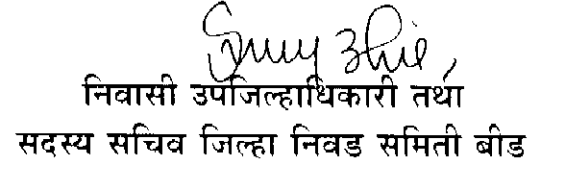 निवासी उपजिल्हाधिकारी तथा
सदस्य सचिव जिल्हा निवड समिती बीड